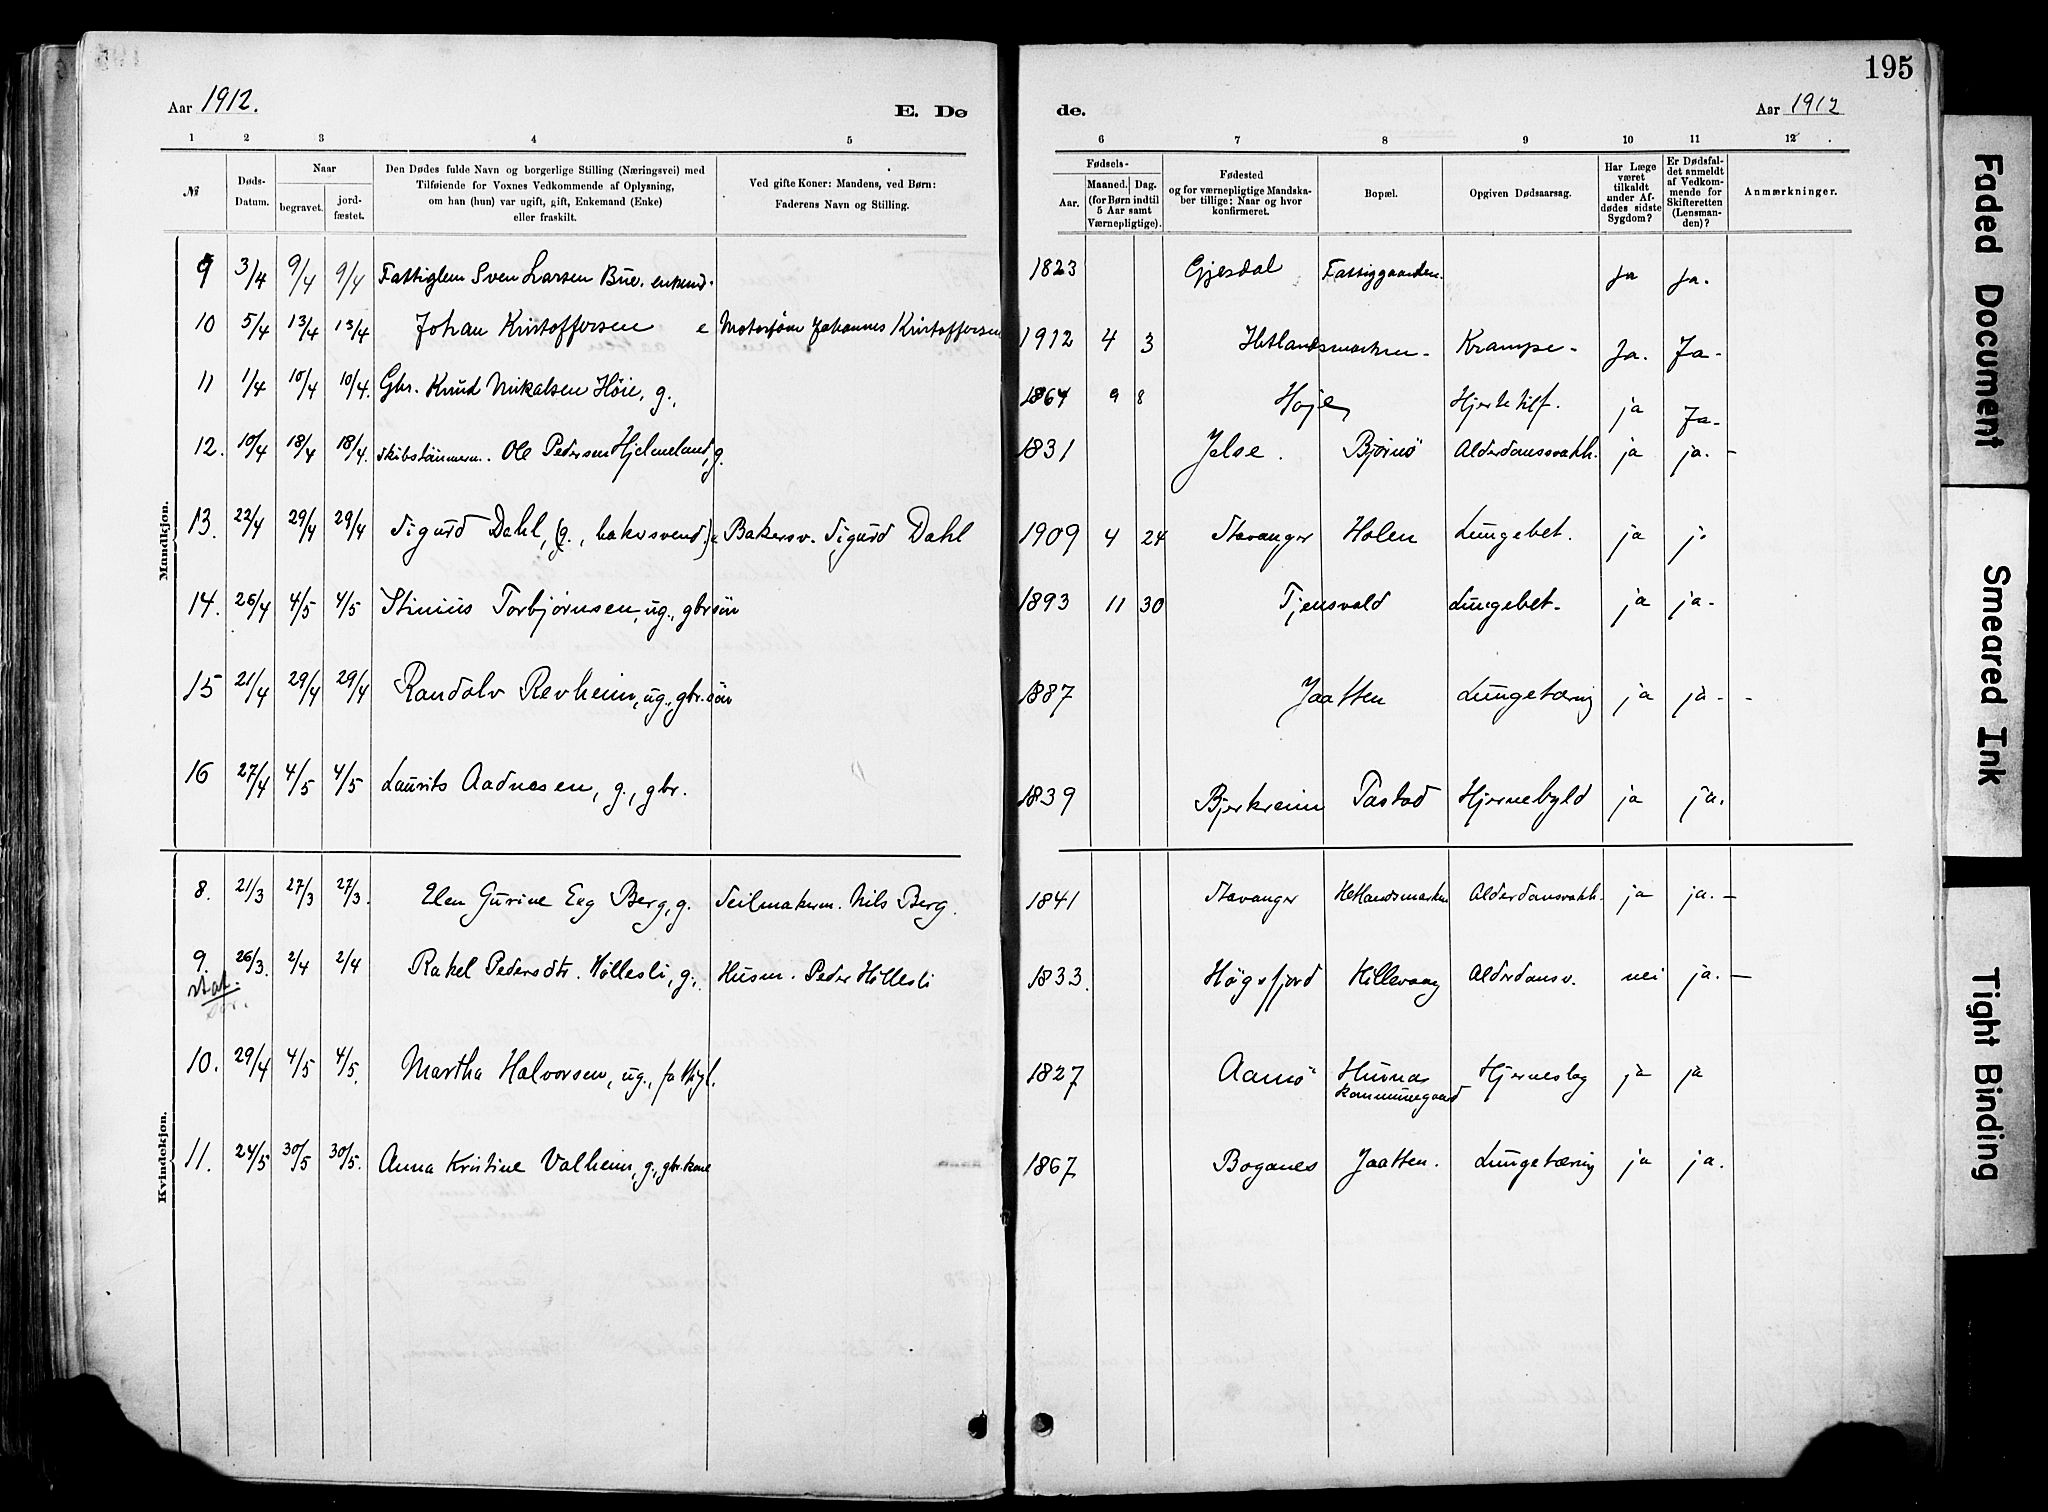 195
Aar 1912. E. Dø de. Aar 1912
1 2 3 4 5 6 7 8 9 10 11 12
№
Døds-Datum.
Naar
begravet. jord-fæstet.
Den Dødes fulde Navn og borgerlige Stilling (Næringsvei) med
Tilføiende for Voxnes Vedkommende af Oplysning,
om han (hun) var ugift, gift, Enkemand (Enke)
eller fraskilt.
Ved gifte Koner: Mandens, ved Børn:
Faderens Navn og Stilling.
Fødsels-
Aar. Maaned. Dag.
(for Børn indtil
5 Aar samt
Værnepligtige).
Fødested
og for værnepligtige Mandska-
ber tillige: Naar og hvor
konfirmeret.
Bopæl.
Opgiven Dødsaarsag.
Har Læge
været
tilkaldt
under Af-
dødes sidste
Sygdom?
Er Dødsfal-
det anmeldt
af Vedkom-
mende for
Skifteretten
(Lensman-
den)?
Anmærkninger.
Mandkjøn.
9 3/4 9/4 9/4 Fattiglem Sven Larsen Bue. enkem. 1823 Gjesdal Fattiggaarden. Ja Ja.
10 5/4 13/4 13/4 Johan Kristoffersen e Motorfører Johannes Kristoffersen 1912 4 3 Hetlandsmarken. Krampe. Ja. Ja.
11 1/4 10/4 10/4. Gbr. Knud Mikalsen Høie, g., 1864 9 8 Høje Hjertetilf. ja Ja.
12. 10/4 18/4 18/4. skibstømmerm. Ole Pedersen Hjelmeland, g. 1831 Jelse. Bjørnö Alderdomssvakh. ja ja. -
13. 22/4 29/4 29/4 Sigurd Dahl, (g., bakersvend) e Bakersv. Sigurd Dahl 1909 4 24 Stavanger Holen Lungebet. ja j.
14. 26/4 4/5 4/5 Stinius Torbjørnsen, ug., gbrsön 1893 11 30 Tjensvold Lungebet. ja ja.
15 21/4 29/4 29/4 Randolv Revheim, ug., gbr.sön 1887 Jaatten Lungetæring ja ja. -
16 27/4 4/5 4/5 Laurits Aadnesen, g., gbr. 1839 Bjerkreim Tastad Hjernebyld ja ja.
Kvindekjøn.
8. 21/3 27/3 27/3. Elen Gurine Eeg Berg, g. Seilmakerm. Nils Berg. 1841 Stavanger Hetlandsmarken Alderdomsvakh. ja ja. -
9. 26/3. 2/4 2/4 Rakel Pedersdtr. Hillesli, g., Husm. Peder Hillesli 1833. Høgsfjord Hillevaag Alderdomsv. nei ja. -
10. 29/4 4/5 4/5. Martha Halvorsen, ug., fattigl. 1827 Aamö Hunas kommunegaard Hjerneslag ja ja
11. 24/5 30/5 30/5. Anna Kristine Valheim, g., gbr.kone 1867 Boganes Jaatten. Lungetæring ja ja.
Faded Document
Smeared Ink
Tight Binding